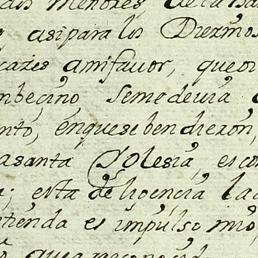 los Menores de la
asi para los Diezmos
amifavor, queor
mbecino, semedeuia
nto, enquese bendieron,
asanta Yglesia, escon
a; esta delicencia la
tienda es impulso mio,